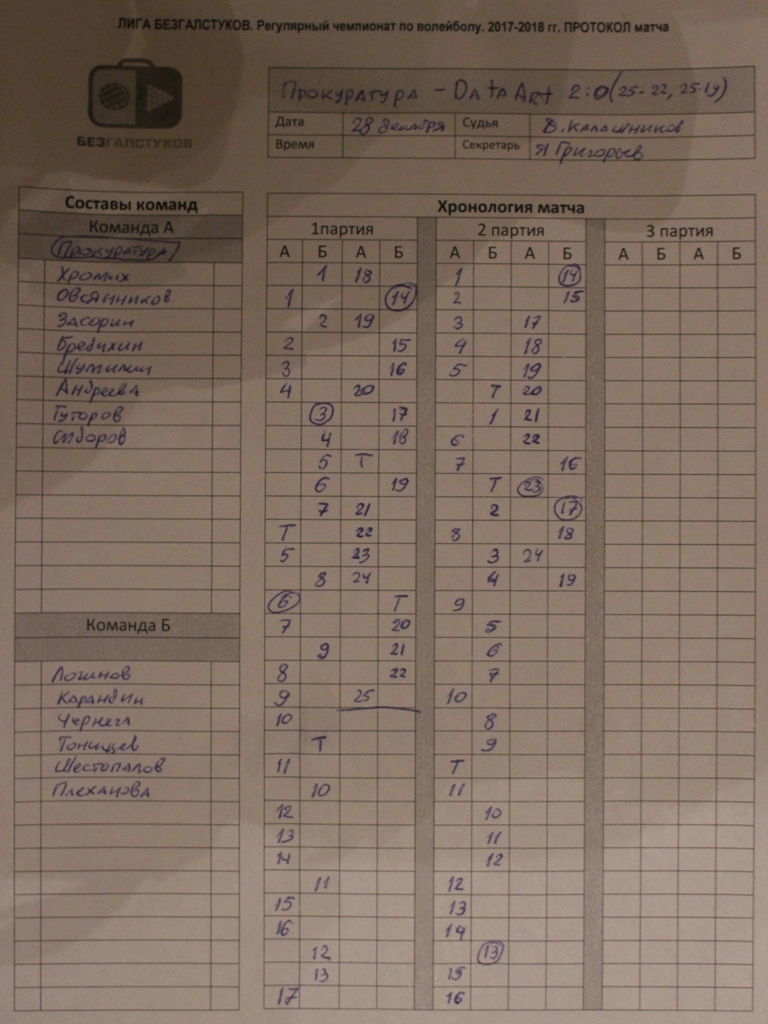 ЛИГА БЕЗГАЛСТУКОВ. Регулярный чемпионат по волейболу. 2017-2018 гг. ПРОТОКОЛ матча
БЕЗГАЛСТУКОВ
Прокуратура - DataArt 2:0 (25-22, 25-19)
Дата 28 декабря Судья В. Калашников
Время Секретарь Я Григорьев
Составы команд
Команда А
Прокуратура
Хромых
Овсянников
Засорин
Бребихин
Шумилин
Андреева
Гуторов
Сидоров
Команда Б
Логинов
Карандин
Чернега
Тонищев
Шестопалов
Плеханова
Хронология матча
1партия 2 партия 3 партия
А Б А Б А Б А Б А Б А Б
1 18 1 14
1 14 2 15
2 19 3 17
2 15 4 18
3 16 5 19
4 20 Т 20
3 17 1 21
4 18 6 22
5 Т 7 16
6 19 Т 23
7 21 2 17
Т 22 8 18
5 23 3 24
8 24 4 19
6 Т 9
7 20 5
9 21 6
8 22 7
9 25 10
10 8
Т 9
11 Т
10 11
12 10
13 11
14 12
11 12
15 13
16 14
12 13
13 15
17 16